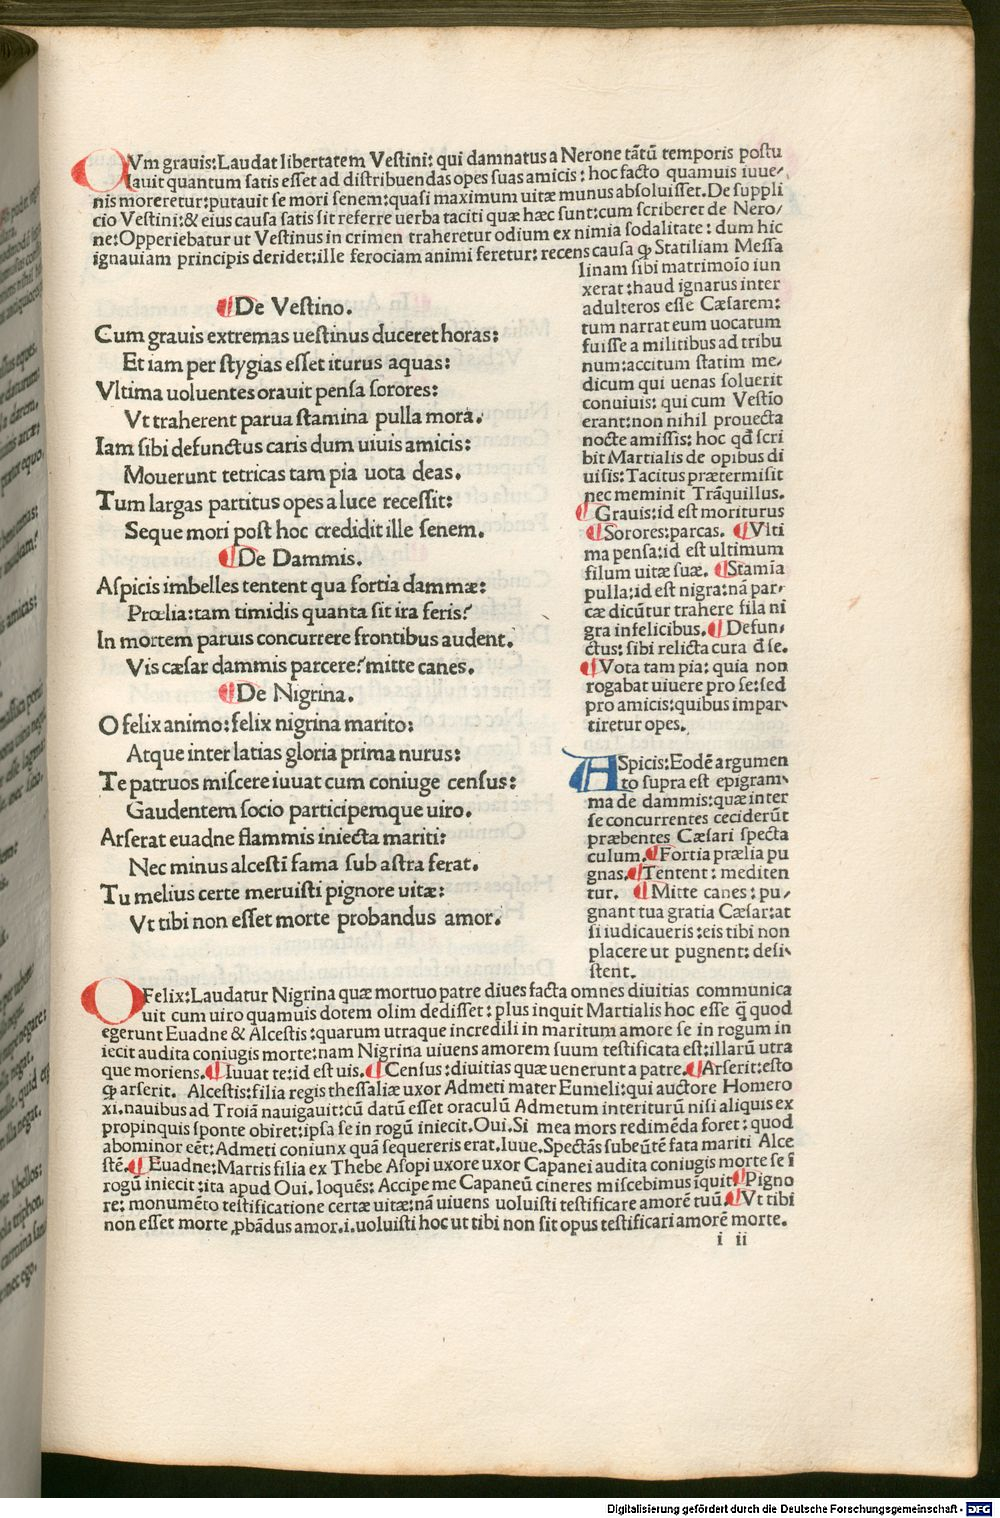 CVm grauis:Laudat libertatem Vestini: qui damnatus a Nerone tãtũ temporis postu
lauit quantum satis esset ad distribuendas opes suas amicis: hoc facto quamuis iuue/
nis moreretur:putauit se mori senem:quasi maximum uitæ munus absoluisset.De suppli
cio Vestini:& eius causa satis sit referre uerba taciti quæ hæc sunt:cum scriberet de Nero/
ne:Opperiebatur ut Vestinus in crimen traheretur odium ex nimia sodalitate: dum hic
ignauiam principis deridet:ille ferociam animi feretur: recens causa ꝙ Statiliam Messa
linam sibi matrimoĩo iun
xerat:haud ignarus inter
adulteros esse Cæsarem:
tum narrat eum uocatum
fuisse a militibus ad tribu
num:accitum statim me/
dicum qui uenas soluerit
conuiuis: qui cum Vestio
erant:non nihil prouecta
nocte amissis: hoc qđ scri
bit Martialis de opibus di
uisis: Tacitus prætermisit
nec meminit Trãquillus.
¶ Grauis:id est moriturus
¶ Sorores:parcas. ¶ Vlti
ma pensa:id est ultimum
filum uitæ suæ. ¶ Stamĩa
pulla:id est nigra:nã par/
cæ dicũtur trahere fila ni
gra infelicibus. ¶ Defun/
ctus: sibi relicta cura đ se.
¶ Vota tam pia: quia non
rogabat uiuere pro se:sed
pro amicis:quibus impar/
tiretur opes.
¶ De Vestino.
Cum grauis extremas uestinus duceret horas:
Et iam per stygias esset iturus aquas:
Vltima uoluentes orauit pensa sorores:
Vt traherent parua stamina pulla mora.
Iam sibi defunctus caris dum uiuis amicis:
Mouerunt tetricas tam pia uota deas.
Tum largas partitus opes a luce recessit:
Seque mori post hoc credidit ille senem.
¶ De Dammis.
Aspicis imbelles tentent qua fortia dammæ:
Prœlia:tam timidis quanta sit ira feris?
In mortem paruis concurrere frontibus audent.
Vis cæsar dammis parcere? mitte canes.
¶ De Nigrina.
O felix animo:felix nigrina marito:
Atque inter latias gloria prima nurus:
Te patruos miscere iuuat cum coniuge census:
Gaudentem socio participemque uiro.
Arserat euadne flammis iniecta mariti:
Nec minus alcestĩ fama sub astra ferat.
Tu melius certe meruisti pignore uitæ:
Vt tibi non esset morte probandus amor.
ASpicis:Eodẽ argumen
to supra est epigram/
ma de dammis:quæ inter
se concurrentes ceciderũt
præbentes Cæsari specta
culum. ¶ Fortia prælia pu
gnas. ¶ Tentent: mediten
tur. ¶ Mitte canes: pu/
gnant tua gratia Cæsar:at
si iudicaueris:eis tibi non
placere ut pugnent: desi/
stent.
OFelix:Laudatur Nigrina quæ mortuo patre diues facta omnes diuitias communica
uit cum uiro quamuis dotem olim dedisset: plus inquit Martialis hoc esse q̃ quod
egerunt Euadne & Alcestis:quarum utraque incredili in maritum amore se in rogum in
iecit audita coniugis morte:nam Nigrina uiuens amorem suum testificata est:illarũ utra
que moriens. ¶ Iuuat te:id est uis. ¶ Census:diuitias quæ uenerunt a patre. ¶ Arserit:esto
ꝙ arserit. Alcestis:filia regis thessaliæ uxor Admeti mater Eumeli:qui auctore Homero
xi.nauibus ad Troiã nauigauit:cũ datũ esset oraculũ Admetum interiturũ nisi aliquis ex
propinquis sponte obiret:ipsa se in rogũ iniecit.Oui.Si mea mors redimẽda foret: quod
abominor eẽt: Admeti coniunx quã sequereris erat.Iuue.Spectãt subeũtẽ fata mariti Alce
stẽ. ¶ Euadne:Martis filia ex Thebe Asopi uxore uxor Capanei audita coniugis morte se ĩ
rogũ iniecit:ita apud Oui.loquẽs: Accipe me Capaneũ cineres miscebimus ĩquit ¶ Pigno
re: monumẽto testificatione certæ uitæ:nã uiuens uoluisti testificare amorẽ tuũ. ¶ Vt tibi
non esset morte ꝓbãdus amor.i.uoluisti hoc ut tibi non sit opus testificari amorẽ morte.
i ii
Digitalisierung gefördert durch die Deutsche Forschungsgemeinschaft - DFG